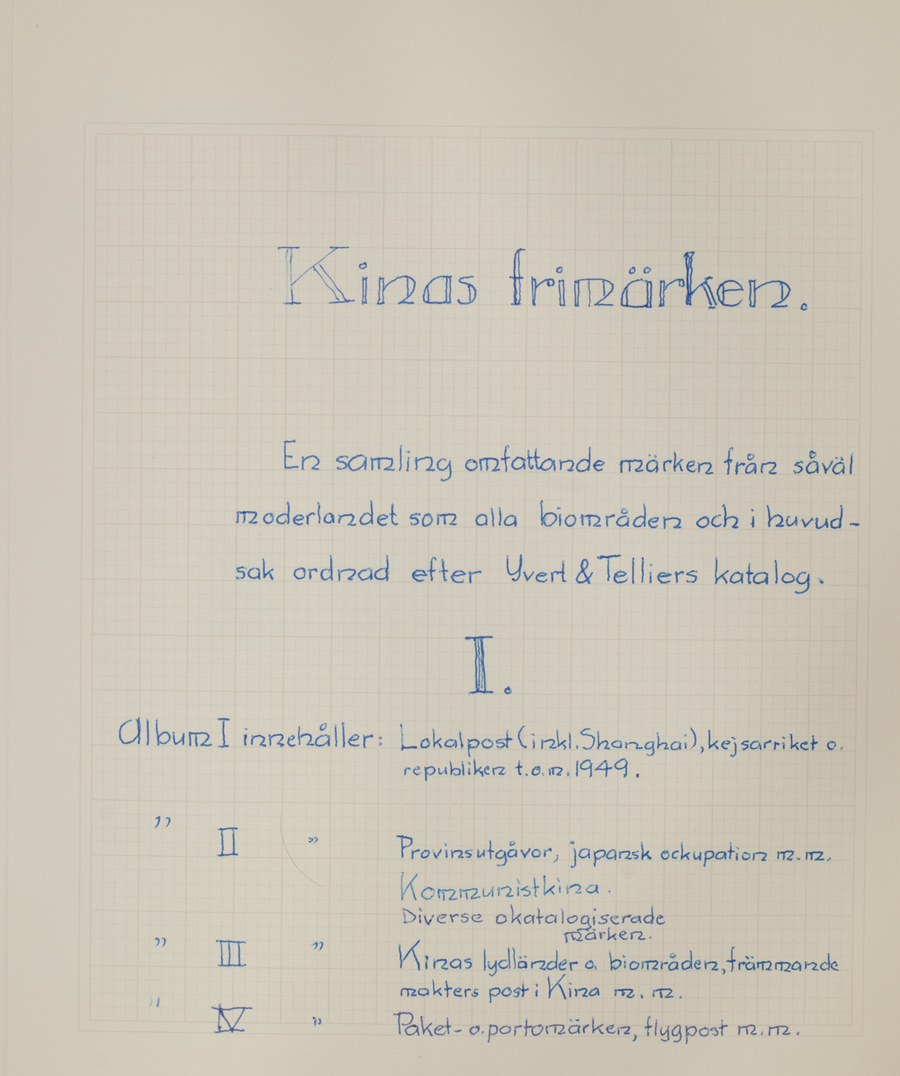 Kinas frimärken.
En samling omfattande märken från såväl
moderlandet som alla biområden och i huvud-
sak ordnad efter Yvert & Telliers katalog.
I.
Album I innehåller: Lokalpost (inkl. Shanghai), kejsarriket o.
republiken t.o.m. 1949.
" II " Provinsutgåvor, japansk ockupation m.m.
Kommunistkina.
Diverse okatalogiserade
märken.
" III " Kinas lydländer o. biområden, främmande
makters post i Kina m.m.
" IV " Paket- o. portomärken, flygpost m.m.